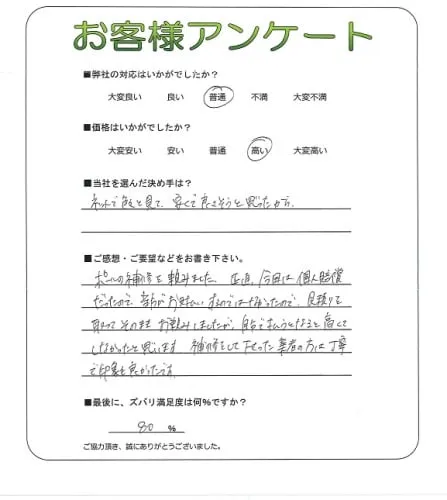 お客様アンケート
■弊社の対応はいかがでしたか？
大変良い 良い 普通 不満 大変不満
■価格はいかがでしたか？
大変安い 安い 普通 高い 大変高い
■当社を選んだ決め手は？
ネットで 見て、安くて良さそうと思ったから。
■ご感想・ご要望などをお書き下さい。
ポールの補修を頼みました。正直、今回は個人賠償
だったので、 ではなかったので、見積りを
取ってそのままお頼みしましたが、自分で払うとなると高くて
しなかったと思います 補修をして下さった業者の方は丁寧
で印象も良かったです。
■最後に、ズバリ満足度は何％ですか？
80 ％
ご協力頂き、誠にありがとうございました。